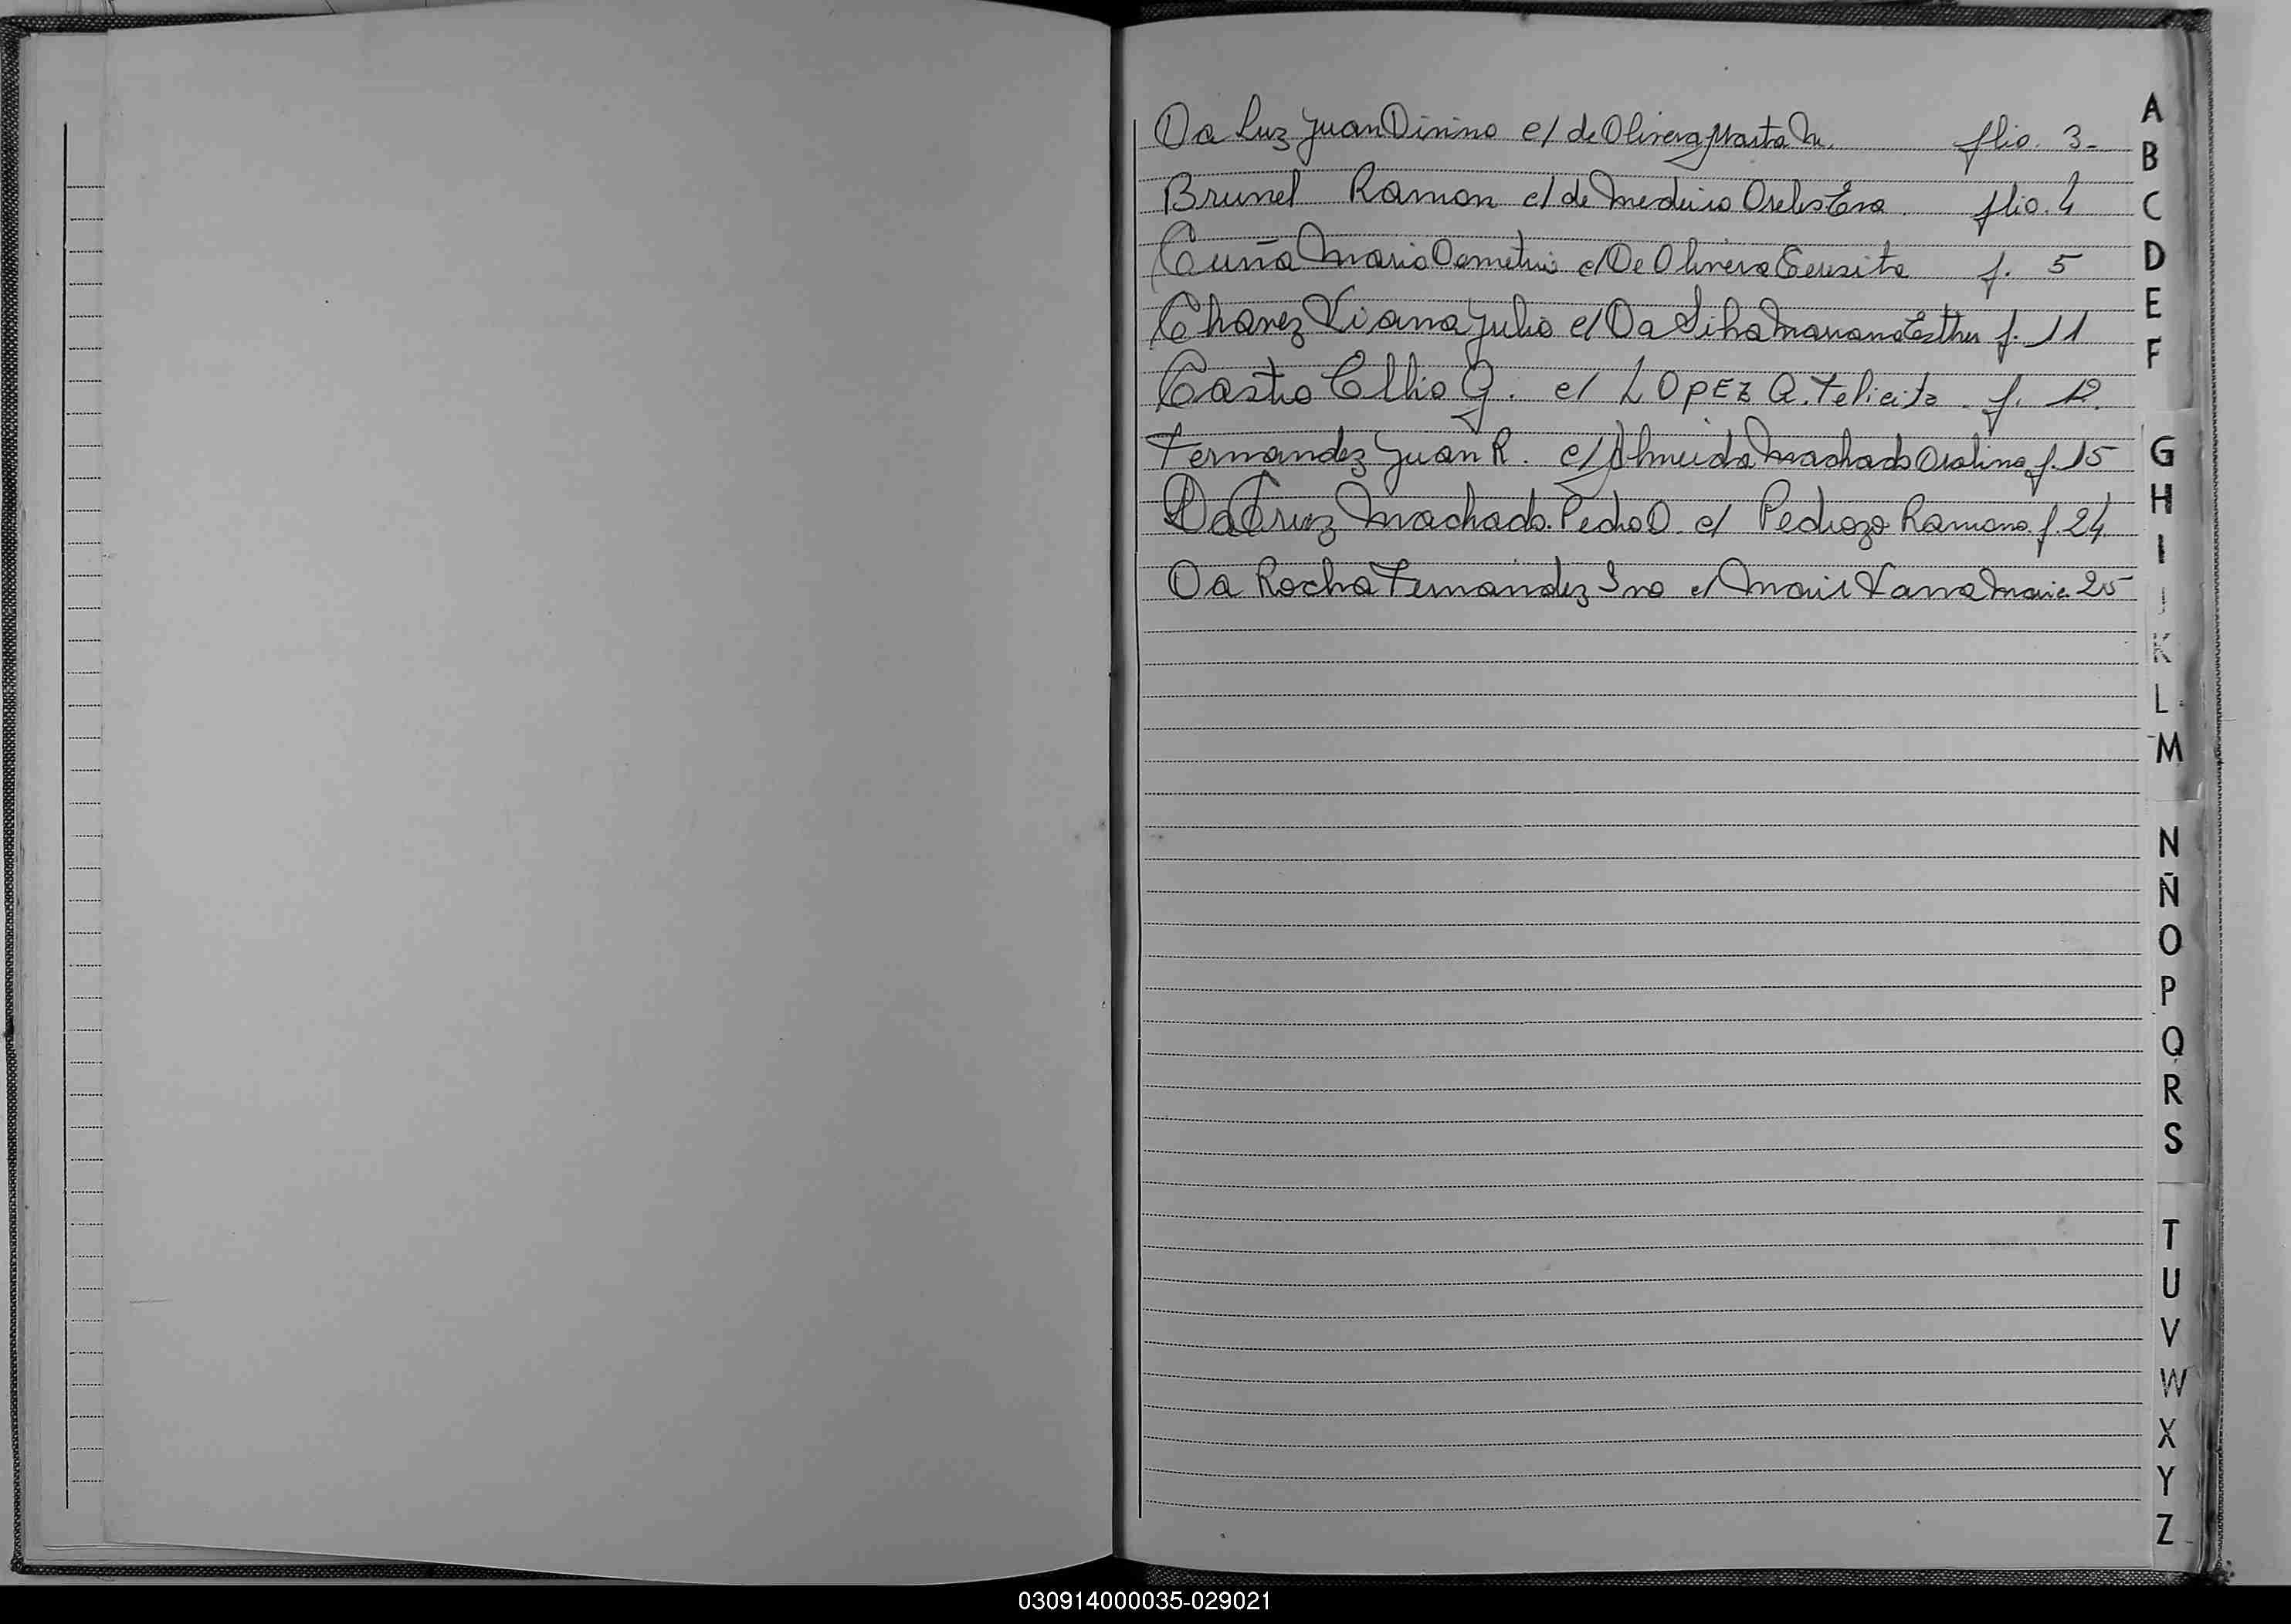 Da Luz Juan Divino c/ de Olivera Marta M. flio. 3-
Brunel Ramon c/ de Medeiro Eva. flio. 4
Cuña Mario Demetrio c/ De Olivera f. 5
Chavez Viana Julio c/ Da Silva Mariana Esther f. 11
Castro Elbio G. c/ LOPEZ Q. Felicita. f. 12.
Fernandez Juan R. c/ Almeida Machado Osalina f. 15
Da Cruz Machado. Pedro D. c/ Pedrozo Ramona. f. 24.
Da Rocha Fernandez c/ 25
A
B
C
D
E
F
G
H
I
J
K
L
M
N
Ñ
O
P
Q
R
S
T
U
V
W
X
Y
Z
030914000035-029021